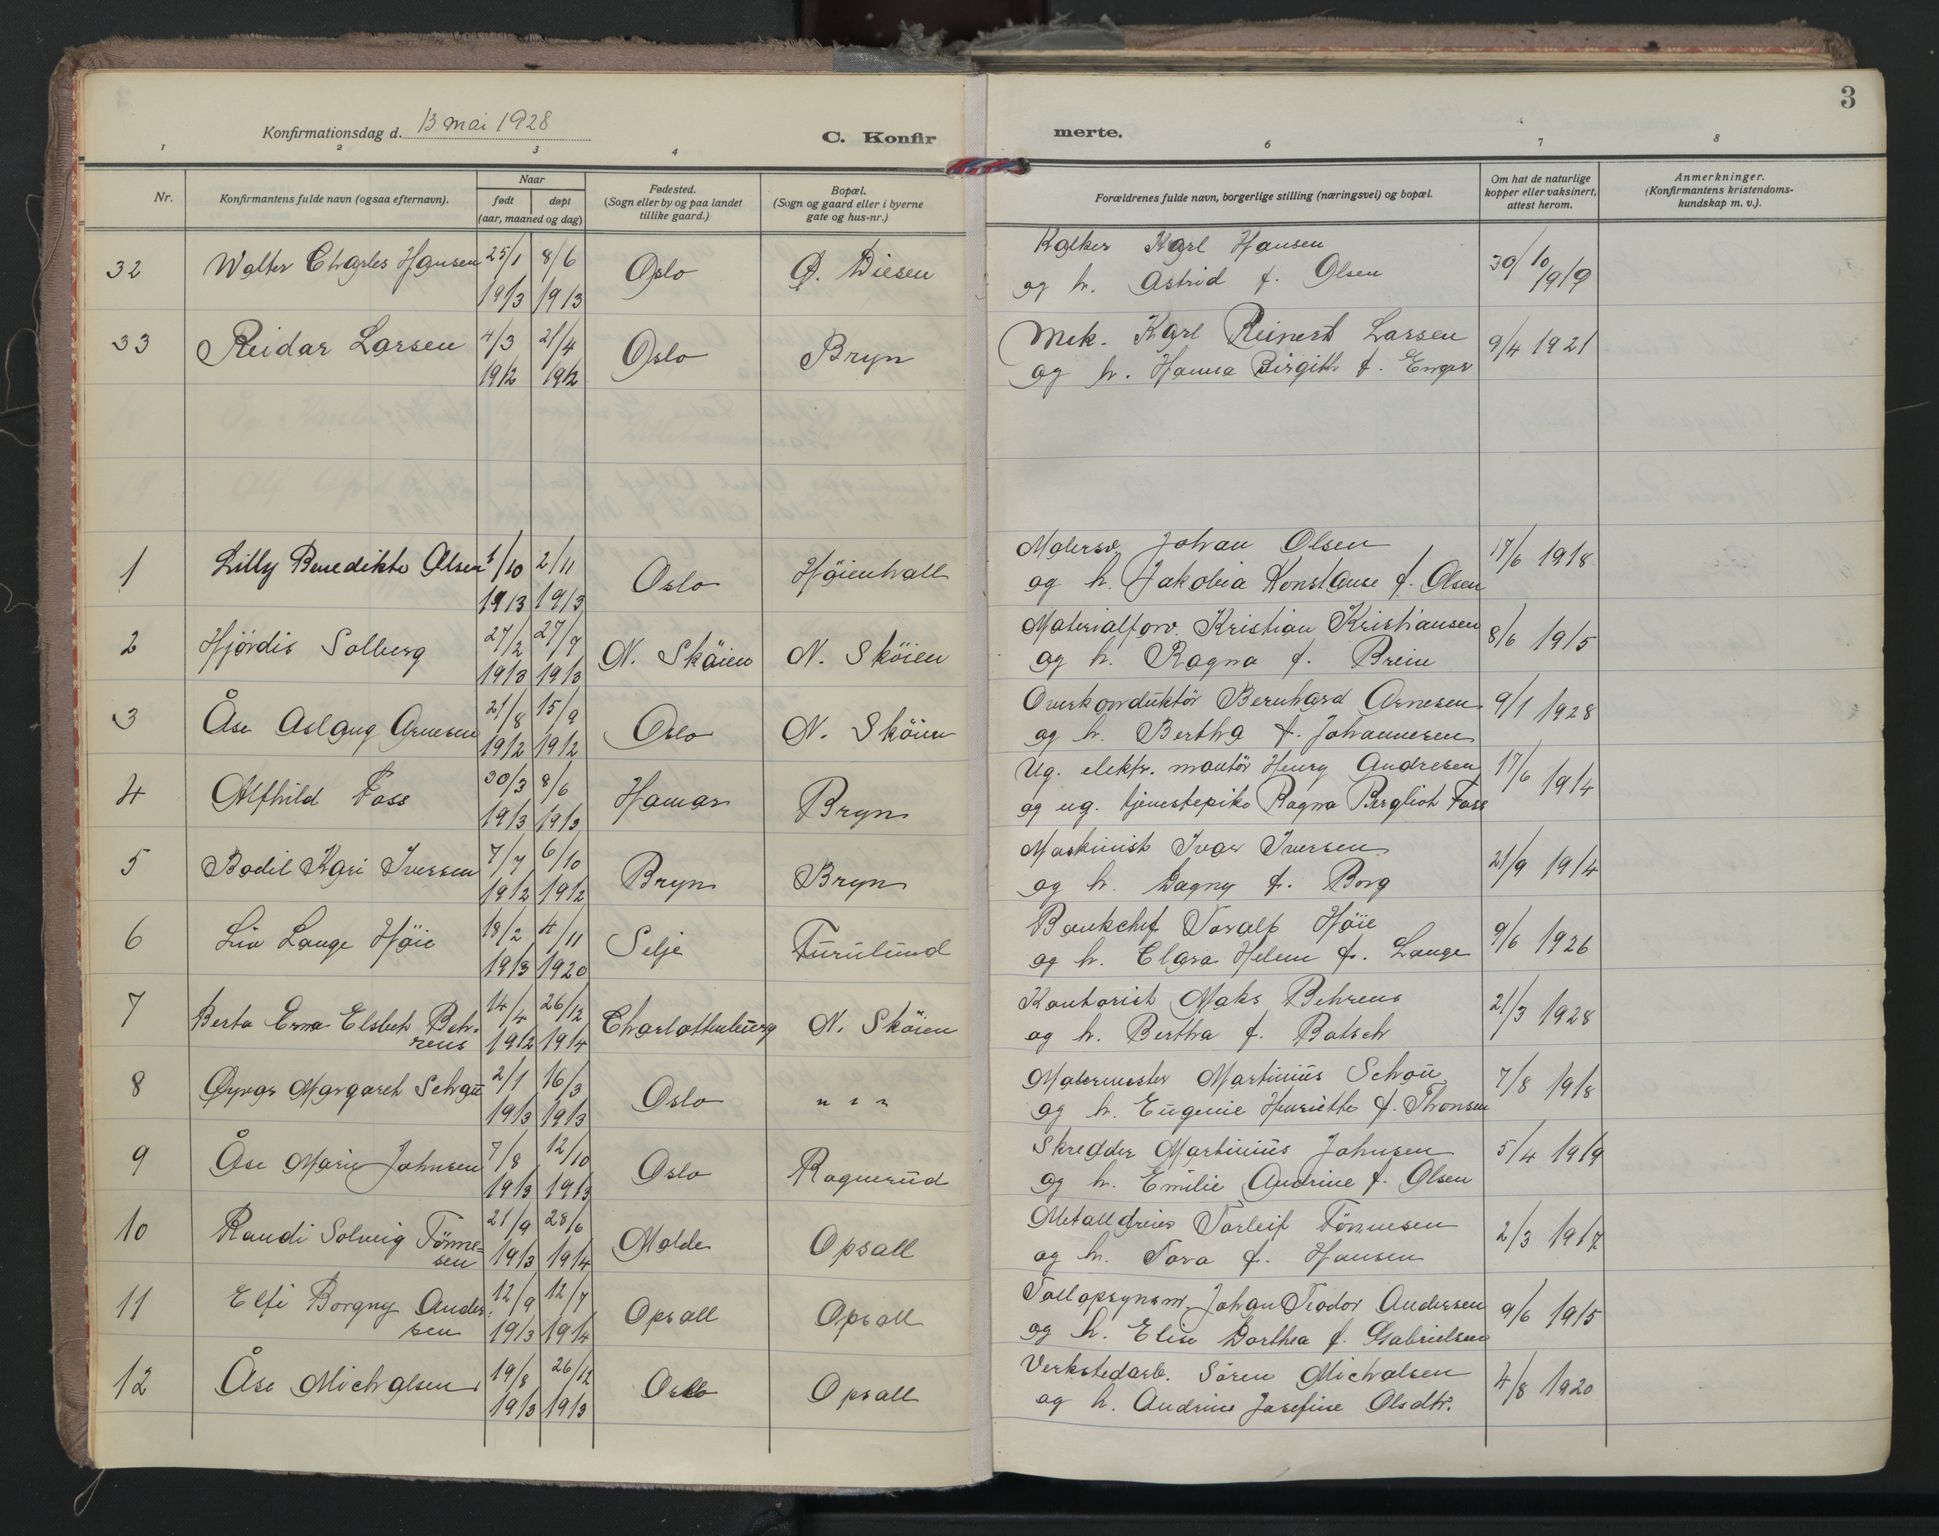 3
Konfirmationsdag d. 13 mai 1928
C. Konfir
merte.
1 2 3 4 6 7 8
Nr.
Konfirmantens fulde navn (ogsaa efternavn).
Naar
født døpt
(aar, maaned og dag)
Fødested.
(Sogn eller by og paa landet
tillike gaard.)
Bopæl.
(Sogn og gaard eller i byerne
gate og hus-nr.)
Forældrenes fulde navn, borgerlige stilling (næringsvei) og bopæl.
Om hat de naturlige
kopper eller vaksinert,
attest herom.
Anmerkninger.
(Konfirmantens kristendoms-
kundskap m. v.).
32 Walter Charles Hansen 25/1 8/6 Oslo Ø. Diesen Kalker Karl Hansen 30/10
1913 1913 og h. Astrid f. Olsen 1919
33 Reidar Larsen 4/3 21/4 Oslo Bryn Mek. Karl Reinert Larsen 9/4 1921
1912 1912 og h. Hanna Birgith f. Enger
1 Lilly Benedikte Olsen 1/10 2/11 Oslo Høienhall Malersv. Johan Olsen 17/6 1918
1913 1913 og h. Jakobia Konstanse f. Olsen
2 Hjördis Solberg 27/2 27/7 N. Sköien N. Sköien Materialforv. Kristian Kristiansen 8/6 1915
1913 1913 og h. Ragna f. Brein
3 Åse Aslaug Arnesen 21/8 15/9 Oslo N. Sköien Overkonduktör Bernhard Arnesen 9/1 1928
1912 1912 og h. Bertha f. Johannesen
4 Alfhild Foss 30/3 8/6 Hamar Bryn Ug. elektr. montör Henry Andresen 17/6 1914
1913 1913 og ug. tjenestepike Ragna Bergliot Foss
5 Bodil Kari Iversen 7/7 6/10 Bryn Bryn Maskinist Ivar Iversen 21/9 1914
1912 1912 og h. Dagny f. Borg
6 Liv Lange Höie 18/2 4/11 Selje Furulund Bankchef Toralf Höie 9/6 1926
1913 1920 og h. Clara Helene f. Lange
7 Berta Erna Elsbet Beh- 14/4 26/12 Charlottenburg N. Sköien Kontorist Maks Behrens 21/3 1928
rens 1912 1914 og h. Bertha f. Batsch
8 Margareth Schou 2/1 16/3 Oslo " " " Malermester Martinius Schou 7/8 1918
1913 1913 og h. Eugenie Henriette f. Thonsen
9 Åse Marie Johnsen 7/8 12/10 Oslo Rognerud Skredder Martinius Johnsen 5/4 1919
1913 1913 og h. Emilie Andrine f. Olsen
10 Randi Solveig Tönne- 21/9 28/6 Molde Opsall Metalldreier Torleif Tönnesen 2/3 1917
sen 1913 1914 og h. Tora f. Hansen
11 Elfi Borgny Ander- 12/9 12/7 Opsall Opsall Tollopsynsm. Johan Teodor Andersen 9/6 1915
sen 1913 1914 og h. Elise Dorthea f. Gabrielsen
12 Åse Michalsen 19/8 26/12 Oslo Opsall Verkstedarb. Sören Michalsen 4/8 1920
1913 1913 og h. Andrine Josefine Olsdtr.